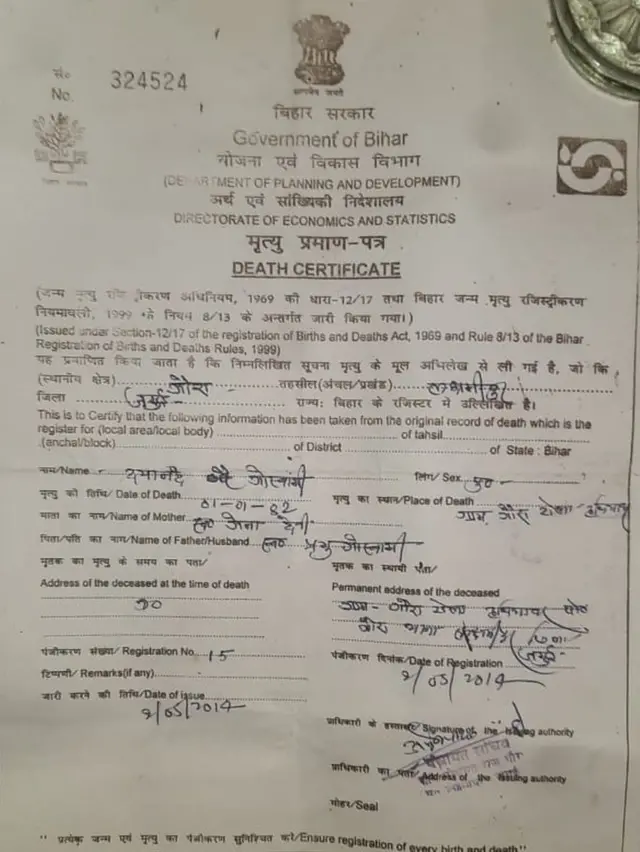 सं०
No. 324524
बिहार सरकार
Government of Bihar
योजना एवं विकास विभाग
(DEPARTMENT OF PLANNING AND DEVELOPMENT)
अर्थ एवं सांख्यिकी निदेशालय
DIRECTORATE OF ECONOMICS AND STATISTICS
मृत्यु प्रमाण-पत्र
DEATH CERTIFICATE
(जन्म मृत्यु अधिनियम, 1969 की धारा-12/17 तथा बिहार जन्म मृत्यु रजिस्ट्रीकरण
नियमावली, 1999 के नियम 8/13 के अन्तर्गत जारी किया गया।)
(Issued under Section-12/17 of the registration of Births and Deaths Act, 1969 and Rule 8/13 of the Bihar
Registration of Births and Deaths Rules, 1999)
यह प्रमाणित किया जाता है कि निम्नलिखित सूचना मृत्यु के मूल अभिलेख से ली गई है, जो कि
(स्थानीय क्षेत्र) तहसील(अंचल/प्रखंड)
जिला जमुई राज्य: बिहार के रजिस्टर में उल्लिखित है।
This is to Certify that the following information has been taken from the original record of death which is the
register for (local area/local body) of tahsil
(anchal/block) of District of State : Bihar
नाम/Name दयानंद गोस्वामी लिंग/ Sex पु०
मृत्यु की तिथि/ Date of Death 01-01-82 मृत्यु का स्थान/Place of Death ग्राम
माता का नाम/Name of Mother स्व० देवी
पिता/पति का नाम/Name of Father/Husband स्व० गोस्वामी
मृतक का मृत्यु के समय का पता/ मृतक का स्थायी पता/
Address of the deceased at the time of death Permanent address of the deceased
ग्राम-
जमुई
पंजीकरण संख्या/ Registration No. 15 पंजीकरण दिनांक/Date of Registration
टिप्पणी/ Remarks(if any) 2/05/2014
जारी करने की तिथि/Date of issue
2/05/2014
प्राधिकारी के हस्ताक्षर/Signature of the issuing authority
पंचायत सचिव
प्राधिकारी का पता/Address of the issuing authority
मोहर/Seal
" प्रत्येक जन्म एवं मृत्यु का पंजीकरण सुनिश्चित करें/Ensure registration of every birth and death"